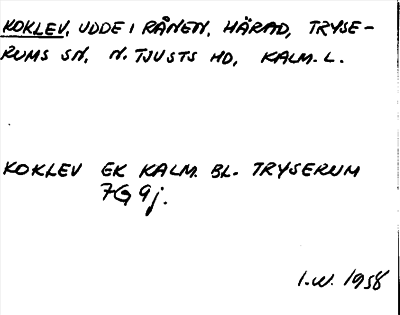 KOKLEV, UDDE I RÅNEN, HÄRAD, TRYSE-
RUMS SN, N. TJUSTS HD, KALM. L.
KOKLEV EK KALM. BL. TRYSERUM
7G 9j.
I.W. 1958